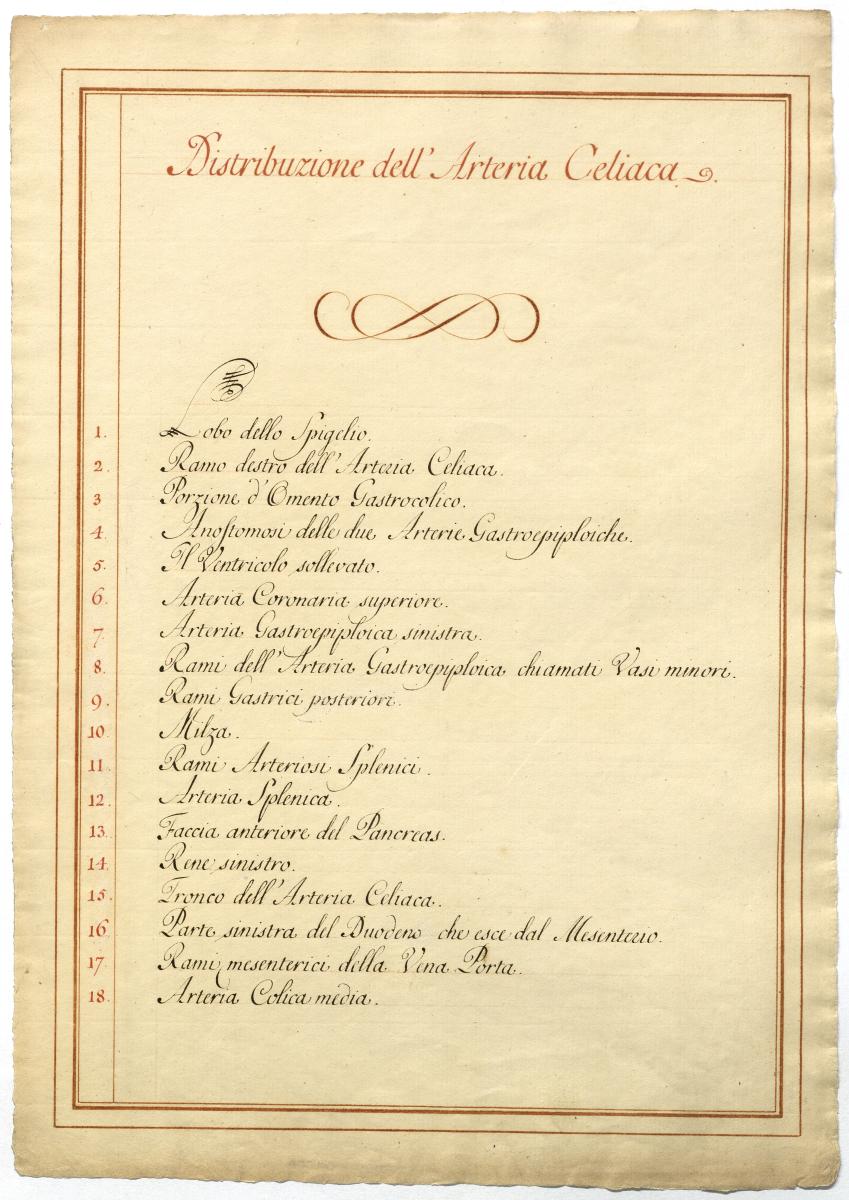 Distribuzione dell'Arteria Celiaca.
1. Lobo dello Spigelio.
2. Ramo destro dell'Arteria Celiaca.
3 Porzione d'Omento Gastrocolico.
4. Anostomosi delle due Arterie Gastroepiploiche.
5. Il Ventricolo sollevato.
6. Arteria Coronaria superiore.
7. Arteria Gastroepiploica sinistra.
8. Rami dell'Arteria Gastroepiploica chiamati Vasi minori.
9. Rami Gastrici posteriori.
10. Milza.
11. Rami Arteriosi Splenici.
12. Arteria Splenica.
13. Faccia anteriore del Pancreas.
14. Rene sinistro.
15. Tronco dell'Arteria Celiaca.
16. Parte sinistra del Duodeno che esce dal Mesenterio.
17. Rami mesenterici della Vena Porta.
18. Arteria Colica media.